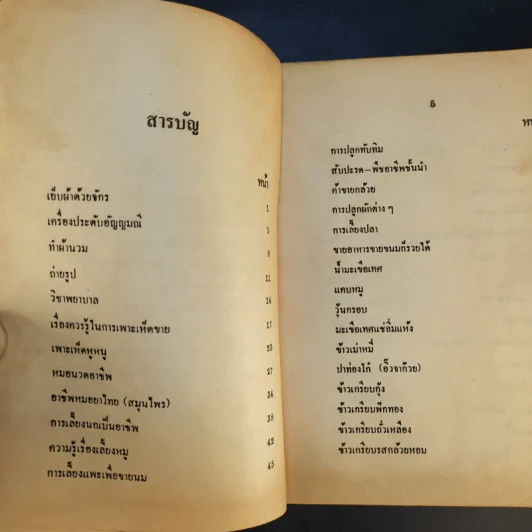 สารบัญ
หน้า
เย็บผ้าด้วยจักร 1
เครื่องประดับอัญญมณี 5
ทำผ้านวม 9
ถ่ายรูป 11
วิชาพยาบาล 14
เรื่องควรรู้ในการเพาะเห็ดขาย 17
เพาะเห็ดหูหนู 23
หมอนวดอาชีพ 27
อาชีพหมอยาไทย (สมุนไพร) 34
การเลี้ยงนกเป็นอาชีพ 38
ความรู้เรื่องเลี้ยงหมู 42
การเลี้ยงแพะเพื่อขายนม 45
6
การปลูกทับทิม
สับปะรด–พืชอาชีพชั้นนำ
ค้าขายกล้วย
การปลูกผักต่าง ๆ
การเลี้ยงปลา
ขายอาหารขายขนมก็รวยได้
น้ำมะเขือเทศ
แคบหมู
วุ้นกรอบ
มะเขือเทศแช่อิ่มแห้ง
ข้าวเม่าหมี่
ปาท่องโก๋ (อิ้วจาก๊วย)
ข้าวเกรียบกุ้ง
ข้าวเกรียบฟักทอง
ข้าวเกรียบถั่วเหลือง
ข้าวเกรียบรสกล้วยหอม